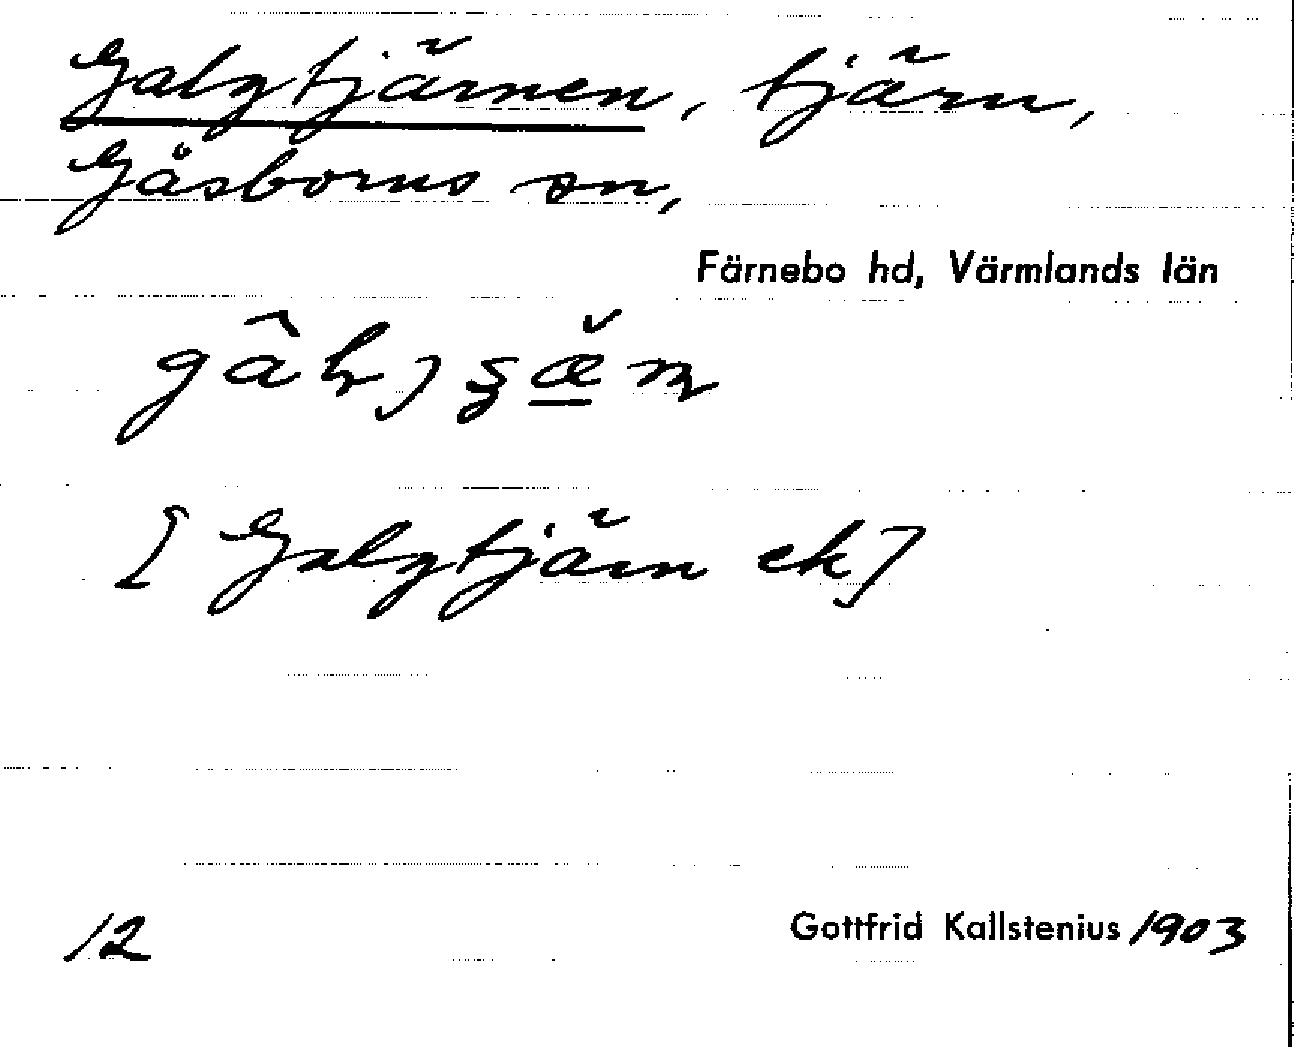 Galgtjärnen, tjärn,
Gåsborns sn,
Färnebo hd, Värmlands län
[Galgtjärn ek]
12
Gottfrid Kallstenius 1903